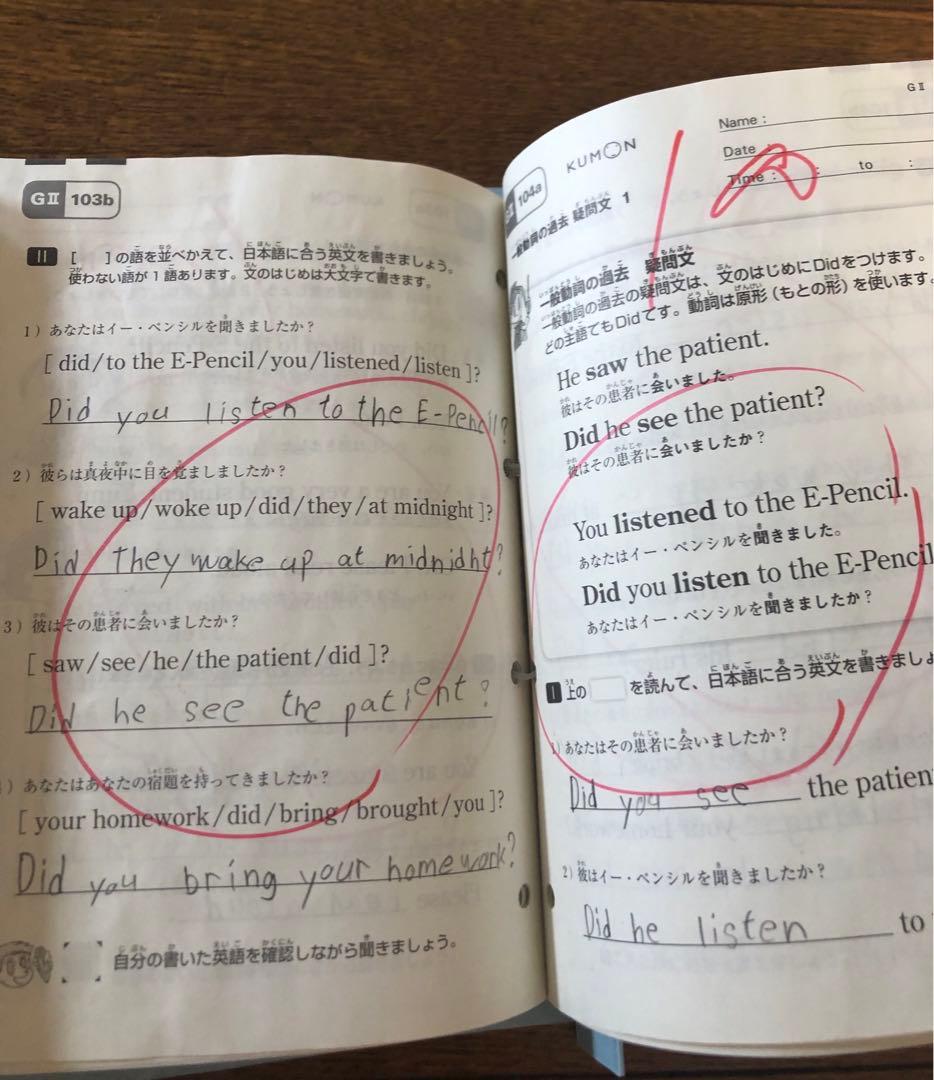 GⅡ 103b
II [ ]の語を並べかえて、日本語に合う英文を書きましょう。
使わない語が1語あります。文のはじめは大文字で書きます。
1）あなたはイー・ペンシルを聞きましたか？
[ did/to the E-Pencil/you/listened/listen ]?
Did you listen to the E-Pencil?
2）彼らは真夜中に目を覚ましましたか？
[ wake up/woke up/did/they/at midnight ]?
Did They wake up at midnidht?
3）彼はその患者に会いましたか？
[ saw/see/he/the patient/did ]?
Did he see the patient?
）あなたはあなたの宿題を持ってきましたか？
[ your homework/did/bring/brought/you ]?
Did you bring your homework?
[ ] 自分の書いた英語を確認しながら聞きましょう。
GⅡ
104a
KUMON
Name :
Date
Time : : to :
一般動詞の過去 疑問文 1
一般動詞の過去 疑問文
一般動詞の過去の疑問文は、文のはじめにDidをつけます。
どの主語でもDidです。動詞は原形（もとの形）を使います。
He saw the patient.
彼はその患者に会いました。
Did he see the patient?
彼はその患者に会いましたか？
You listened to the E-Pencil.
あなたはイー・ペンシルを聞きました。
Did you listen to the E-Pencil
あなたはイー・ペンシルを聞きましたか？
I 上の を読んで、日本語に合う英文を書きましょ
1）あなたはその患者に会いましたか？
Did you see the patien
2）彼はイー・ペンシルを聞きましたか？
Did he listen to